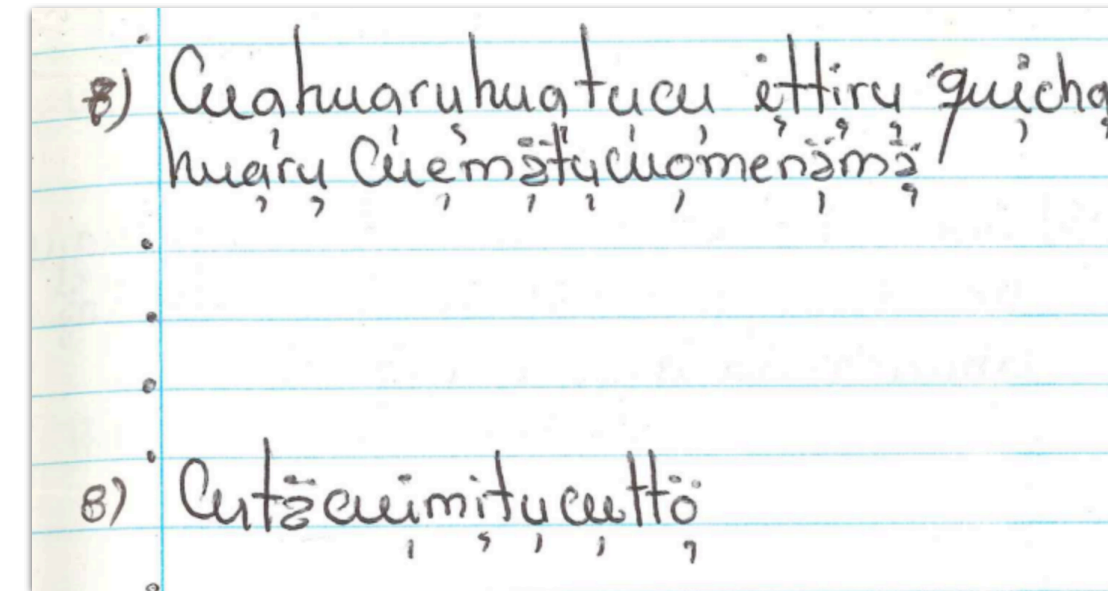 8) Cuahuaruhuatucu ëttiru quicha
huaru Cuemätucuomenämä
8) Cutäcuimitucuttö